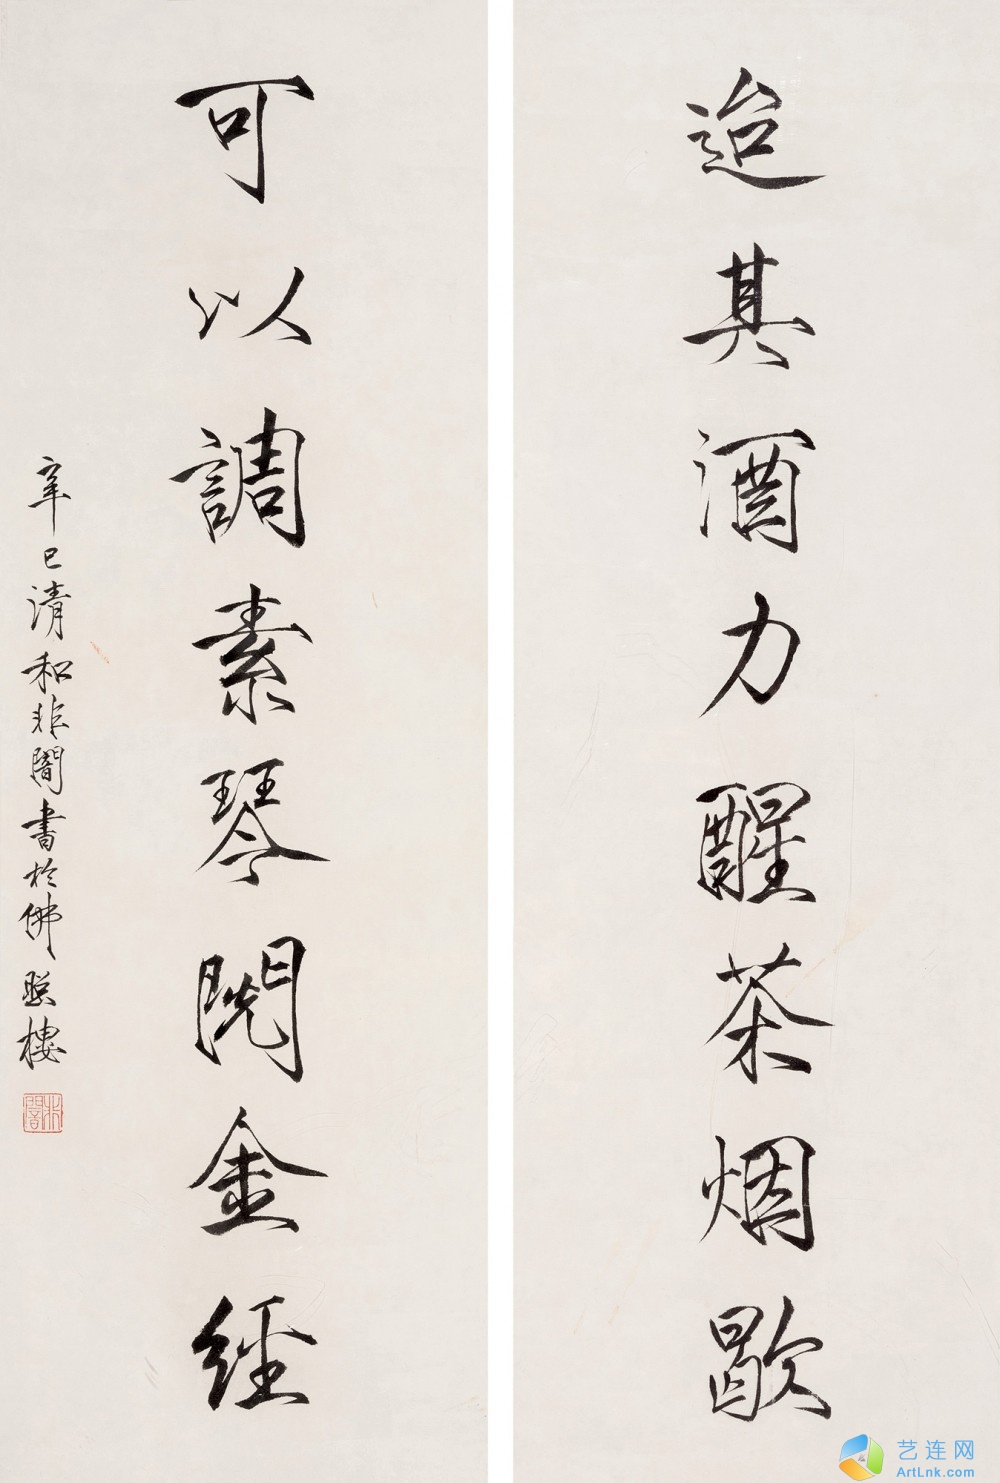 迨其酒力醒茶烟歇
可以調素琴閱金經
辛巳清和非闇書於佛䀽樓
非闇
艺连网
ArtLnk.com